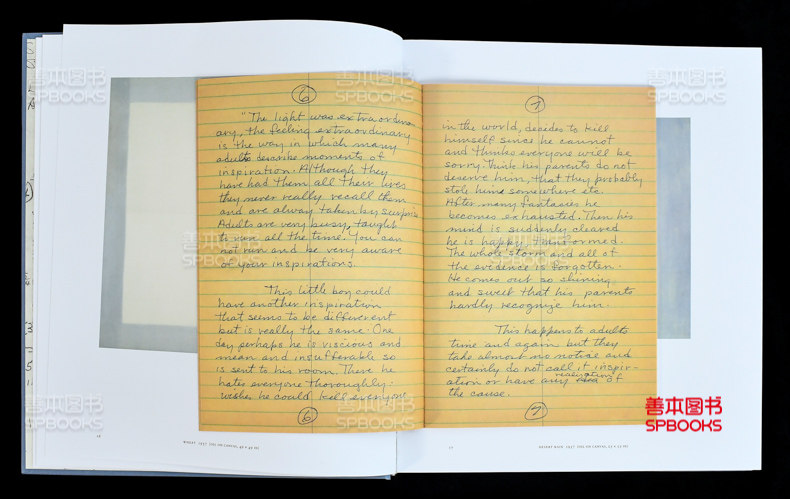 善本图书
SPBOOKS
善本图书
SPBOOKS
善本图书
SPBOOKS
6
"The light was extraordin-
ary, the feeling extraordinary
is the way in which many
adults describe moments of
inspiration. Although they
have had them all their lives
they never really recall them
and are alway taken by surprise
Adults are very busy, taught
to run all the time. You can
not run and be very aware
of your inspirations.
This little boy could
have another inspiration
that seems to be different
but is really the same. One
day perhaps he is viscious and
mean and insufferable so
is sent to his room. There he
hates everyone thoroughly-
wishes he could kill everyone
6
7
in the world, decides to kill
himself since he cannot
and thinks everyone will be
sorry. Think his parents do not
deserve him, that they probably
stole him somewhere etc.
After many fantasies he
becomes exhausted. Then his
mind is suddenly cleared
he is happy transformed.
The whole storm and all of
the evidence is forgotten.
He comes out so shining
and sweet that his parents
hardly recognize him.
This happens to adults
time and again but they
take almost no notice and
certainly do not call it inspir-
ation or have any realization of
the cause.
7
善本图书
SPBOOKS
善本图书
SPBOOKS
善本图书
SPBOOKS
善本图书
SPBOOKS
善本图书
SPBOOKS
WHEAT. 1957 [OIL ON CANVAS,
17
DESERT RAIN. 1957 [OIL ON CANVAS,